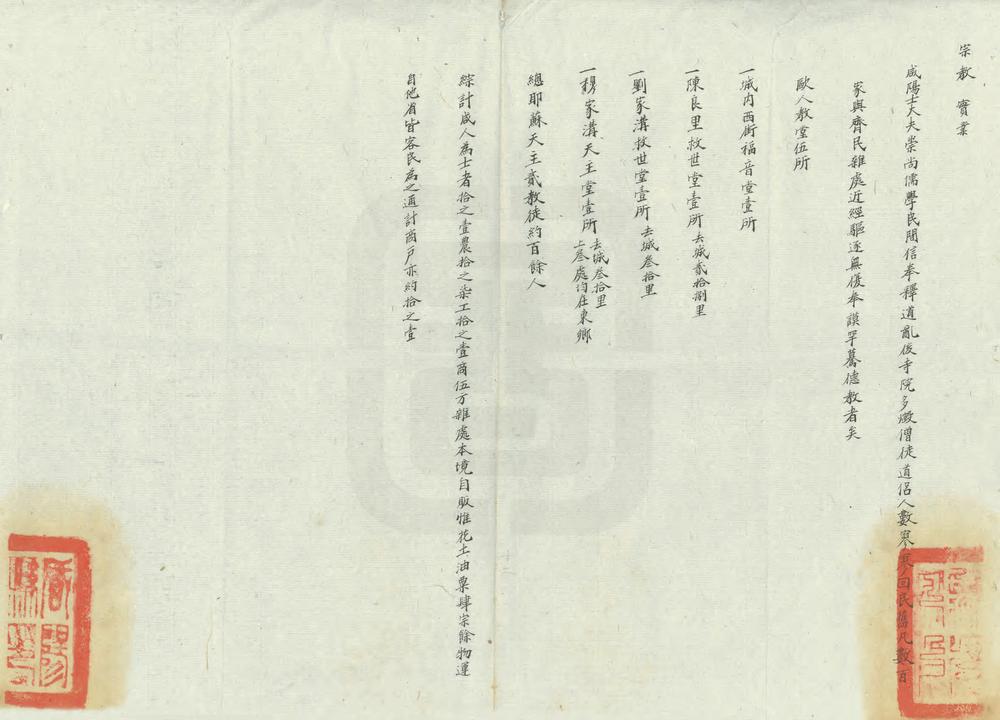 宗教 實業
咸陽士大夫崇尚儒學民間信奉釋道亂後寺院多燬僧徒道侶人數寥寥回民舊凡數百
家與齊民雜處近經驅逐無復奉謨罕驀德教者矣
歐人教堂伍所
一城內西街福音堂壹所
一陳良里救世堂壹所去城貳拾捌里
一劉家溝救世堂壹所去城叁拾里
一穆家溝天主堂壹所去城叁拾里上叁處均在東鄉
總耶蘇天主貳教徒約百餘人
綜計咸人為士者拾之壹農拾之柒工拾之壹商伍方雜處本境自販惟花土油粟肆宗餘物運
自他省皆客民為之通計商戶亦約拾之壹